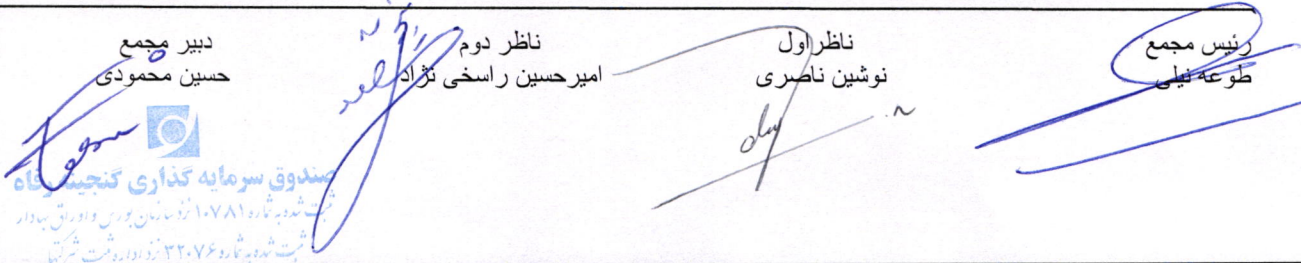 رئیس مجمع
طوعه نیلی
ناظر اول
نوشین ناصری
ناظر دوم
امیرحسین راسخی نژاد
دبیر مجمع
حسین محمودی
صندوق سرمایه گذاری گنجینه رفاه
ثبت شده به شماره ۱۰۷۸۱ نزد سازمان بورس و اوراق بهادار
ثبت شده به شماره ۳۲۰۷۶ نزد اداره ثبت شرکتها